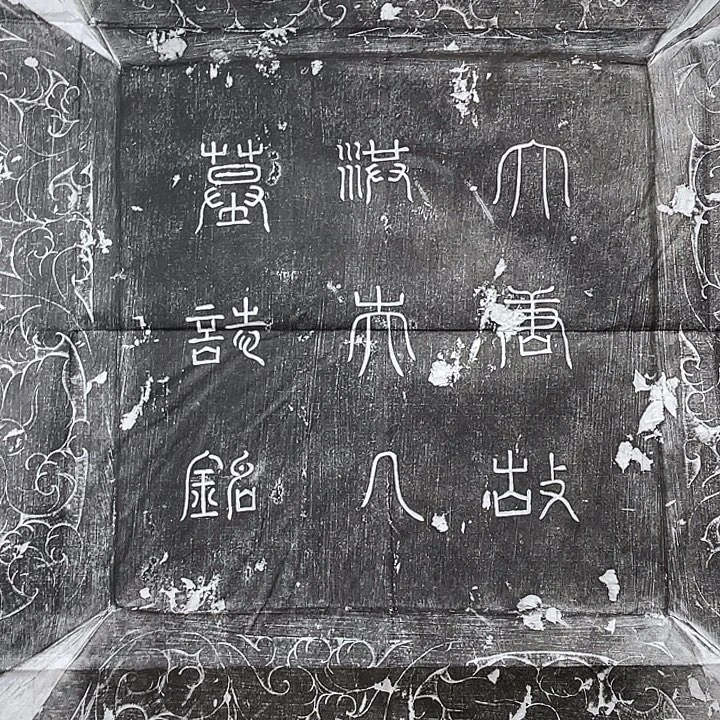 大唐故
洪夫人
墓誌銘